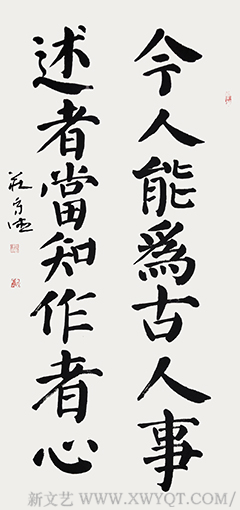 今人能為古人事
述者當知作者心
新文艺 WWW.XWYQT.COM/